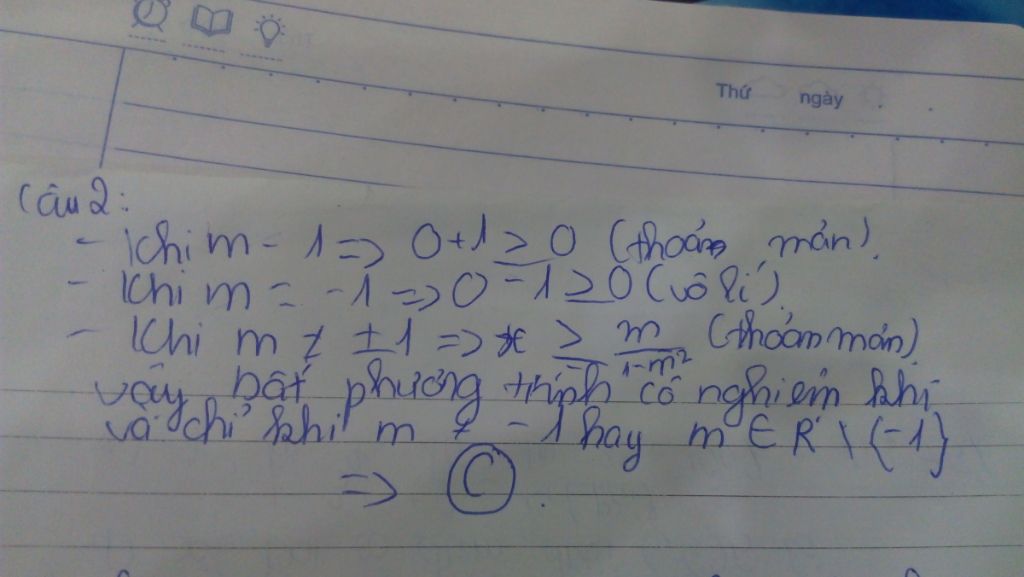 Thứ ngày
Câu 2:
- Khi m - 1 => 0+1 ≥ 0 (thoản mản).
- Khi m = -1 => 0 - 1 ≥ 0 (vô lí)
- Khi m ≠ ±1 => x ≥ m/(1-m²) (thoản mản)
vậy bất phương trình có nghiệm khi
và chỉ khi m ≠ -1 hay m ∈ R \ {-1}
=> C.